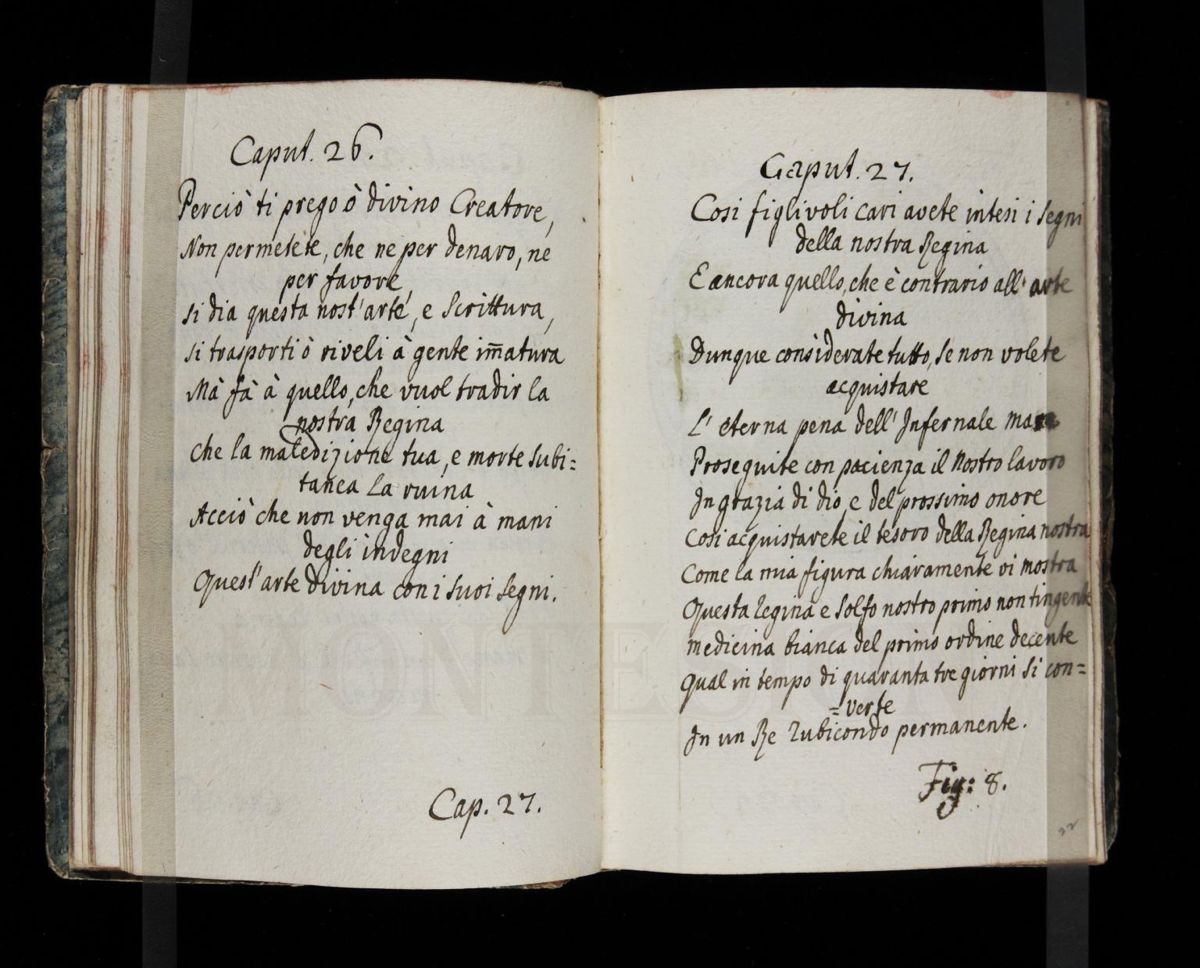 Caput. 26.
Perciò ti prego ò divino Creatore,
Non permetete, che ne per denaro, ne
per favore,
si dia questa nost' arte, e Scrittura,
si trasporti ò riveli à gente im̅atura
Mà fà à quello, che vuol tradir la
nostra Regina
che la maledizione tua, e morte subi=
tanea la ruina
Acciò che non venga mai à mani
degli indegni
Quest' arte divina con i suoi segni.
Cap. 27.
Caput. 27.
Cosi figlivoli cari avete intesi i segni
della nostra Regina
E ancora quello, che è contrario all' arte
divina
Dunque considerate tutto, se non volete
acquistare
L' eterna pena dell' Infernale
Proseguite con pacienza il nostro lavoro
In grazia di dio, e del prossimo onore
Cosi acquistarete il tesoro della Regina nostra
Come la mia figura chiaramente vi mostra
Questa regina e solfo nostro primo non tingente
medicina bianca del primo ordine decente
Qual in tempo di quaranta tre giorni si con=
=verte
In un Re rubicondo permanente.
Fig: 8.